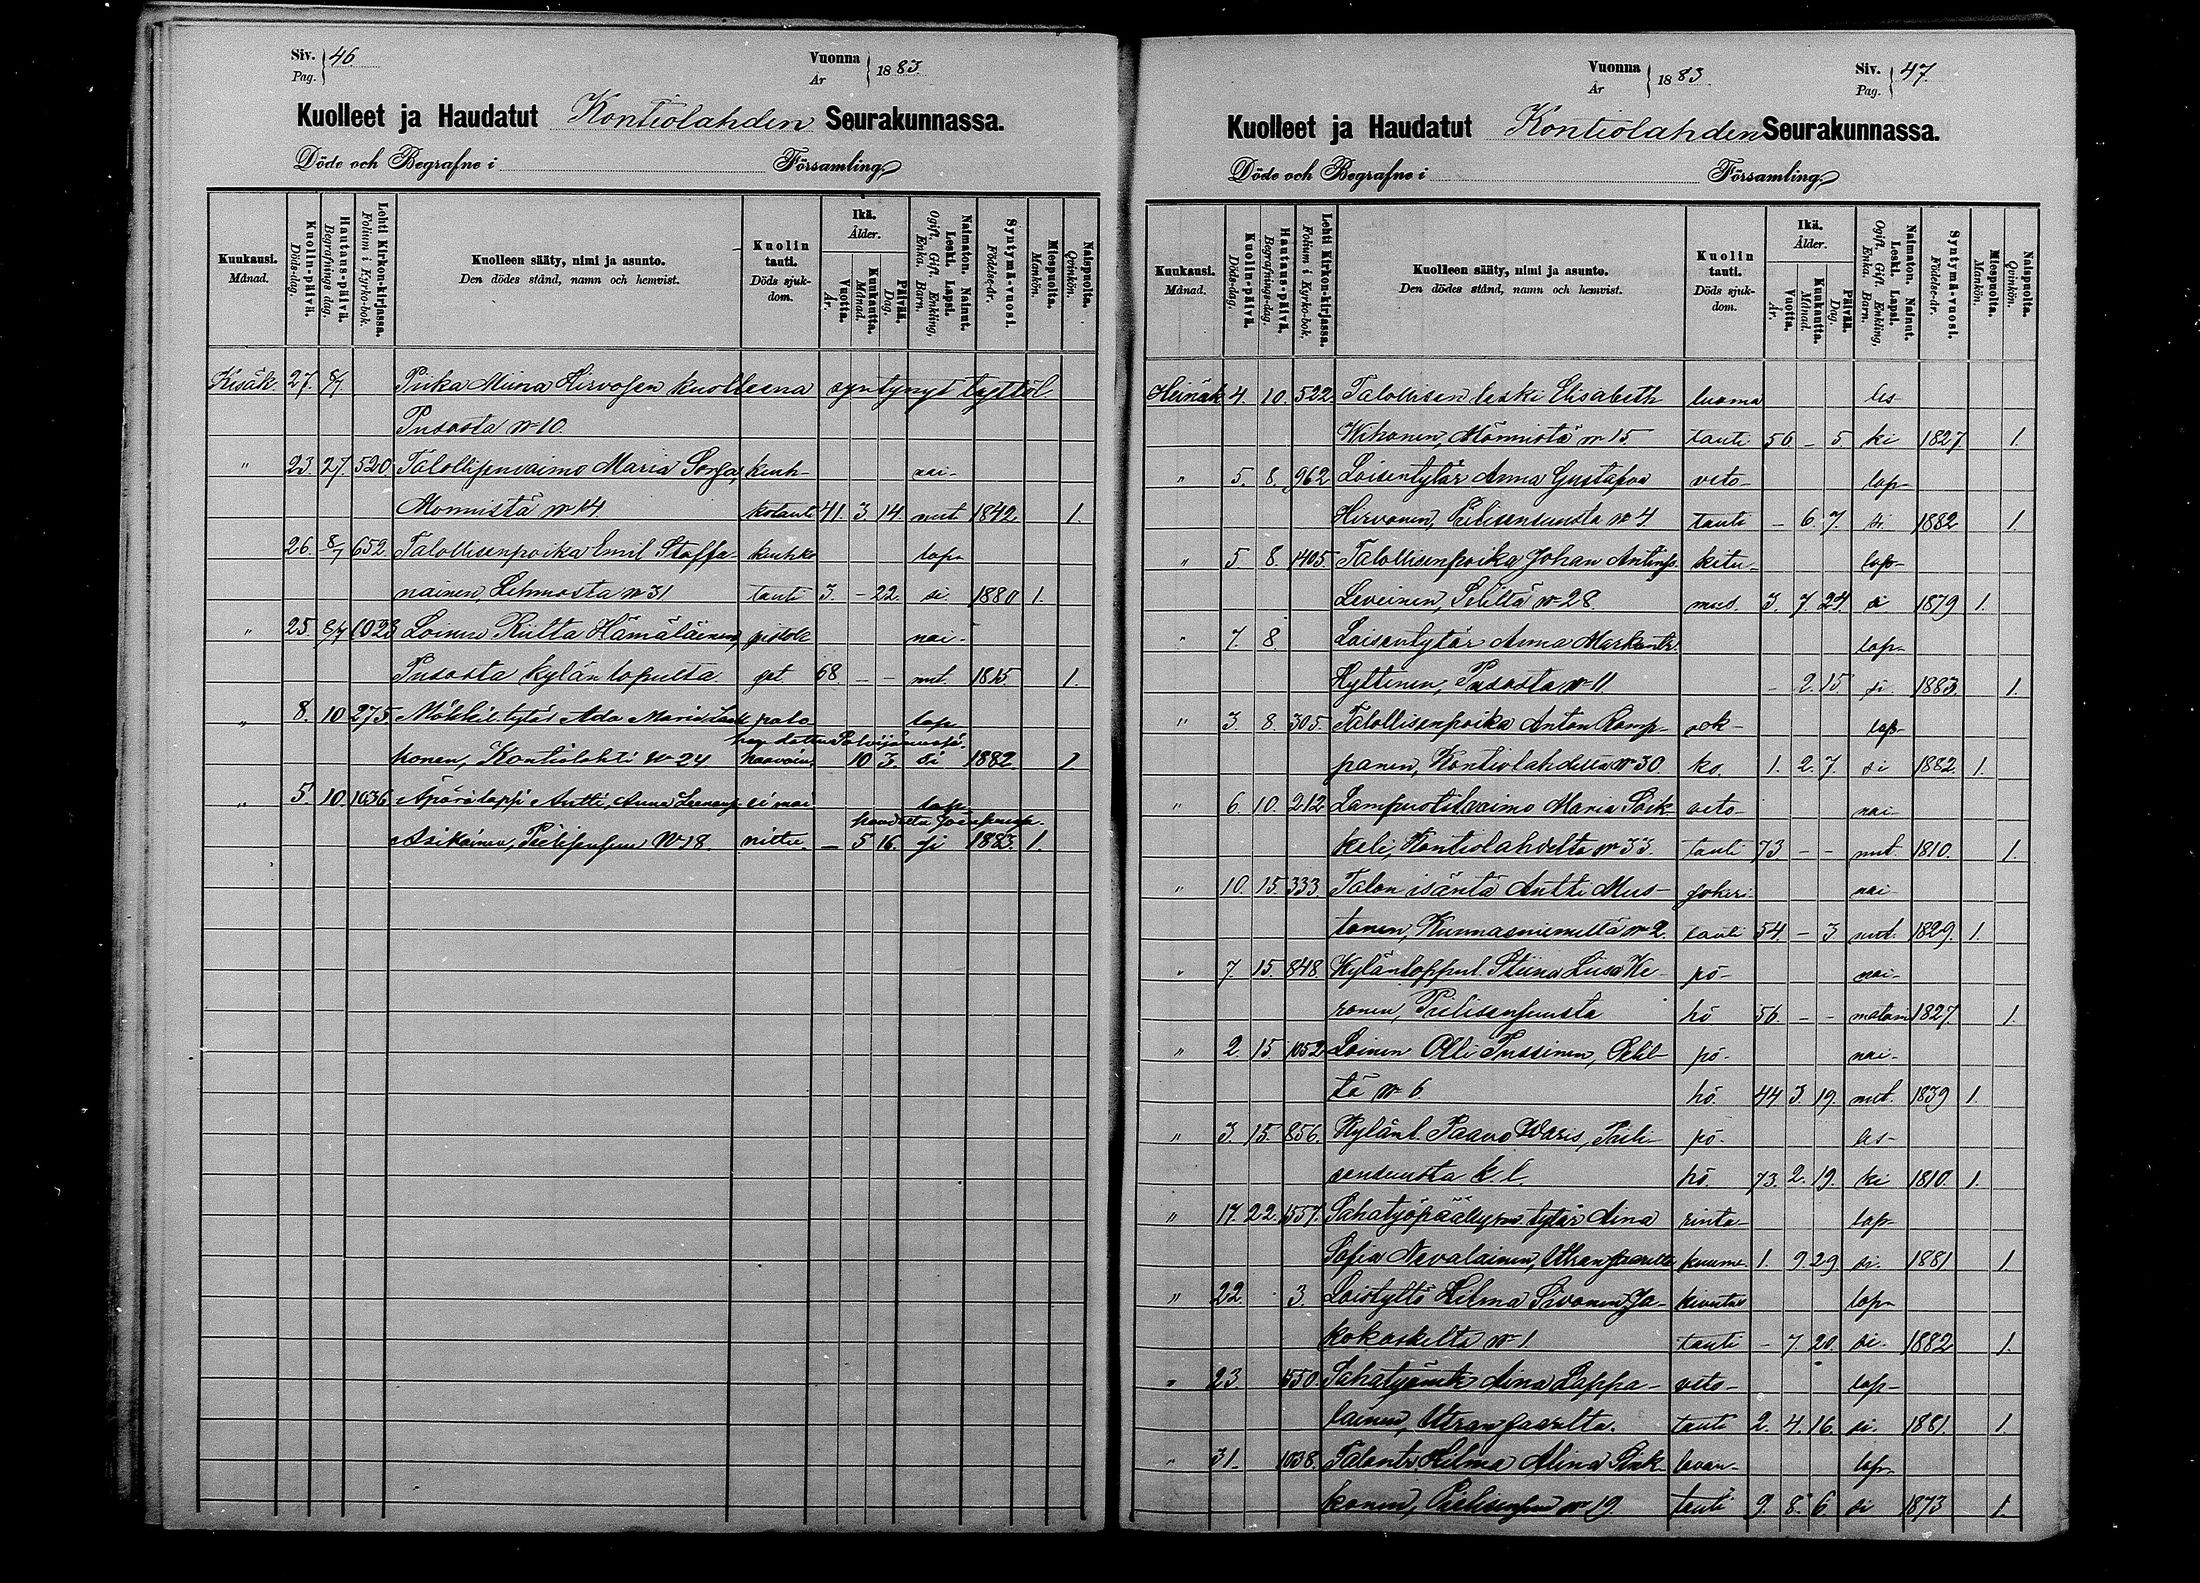 Siv. Pag. 46.
Vuonna År 1883.
Kuolleet ja Haudatut Kontiolahden Seurakunnassa.
Döde och Begrafne i Församling
Kuukausi. Månad.
Kuolin-päivä. Döds-dag.
Hautaus-päivä. Begrafnings dag.
Lehti Kirkon-kirjassa. Folium i Kyrko-bok.
Kuolleen sääty, nimi ja asunto. Den dödes stånd, namn och hemvist.
Kuolin tauti. Döds sjukdom.
Ikä. Ålder.
Vuotta. År.
Kuukautta. Månad.
Päivää. Dag.
Naimaton. Nainut. Leski. Lapsi. Ogift, Gift, Enkling, Enka. Barn.
Syntymä-vuosi. Födelse-år.
Miespuolta. Mankön.
Naispuolta. Qvinkön.
Kisäk. 27. 8/7 Piika Miina Hirvosen kuolleena syntynyt tyttöl.
Pusosta No 10.
" 23. 27. 520. Talollisenvaimo Maria Sorsa, keuh- nai-
Monnista No 14. kotauti 41. 3. 14. nut 1842. 1.
26. 8/7 652. Talollisenpoika Emil Staffa- keuhko lap-
nainen, Lehmosta No 31 tauti 3. - 22. si. 1880 1.
" 25. 8/7 1028 Loinen Riitta Hämäläinen, pistok nai-
Pusosta kylän lopulta. set 68. - - nut. 1815. 1.
" 8. 10 275. Mökkil. tytär Ada Maria palo lap-
honen, Kontiolahti No 24 haavoin 10 3. si 1882 1
" 5. 10. 1036 Äpärälapsi Antti, Anna ei mai lap-
Asikainen, Pielisensuu No 18. nittu. - 5 16. si 1883. 1.
Vuonna År 1883.
Siv. Pag. 47.
Kuolleet ja Haudatut Kontiolahden Seurakunnassa.
Döde och Begrafne i Församling
Kuukausi. Månad.
Kuolin-päivä. Döds-dag.
Hautaus-päivä. Begrafnings-dag.
Lehti Kirkon-kirjassa. Folium i Kyrko-bok.
Kuolleen sääty, nimi ja asunto. Den dödes stånd, namn och hemvist.
Kuolin tauti. Döds sjukdom.
Ikä. Ålder.
Vuotta. År.
Kuukautta. Månad.
Päivää. Dag.
Naimaton. Nainut. Leski. Lapsi. Ogift, Gift, Enkling, Enka. Barn.
Syntymä-vuosi. Födelse-år.
Miespuolta. Mankön.
Naispuolta. Qvinkön.
Heinäk 4. 10. 522. Talollisen leski Elisabeth luoma les
Wihonen, Mönnistä No 15 tauti 56 - 5. ki 1827. 1.
" 5. 8. 962 Loisentytär Anna Gustafva veto- lap-
Hirvonen, Pielisensuusta No 4 tauti - 6. 7. si. 1882 1.
" 5 8. 1405. Talollisenpoika Johan Antinp. kitu- lap-
Leveinen, Seliltä No 28. mus. 3. 7. 24. si 1879 1.
" 7. 8. Loisentytär Anna Markuntr. lap-
Hyttinen, Pusosta No 11 - 2. 15. si. 1883. 1.
" 3. 8. 305. Talollisenpoika Anton Romp- rok- lap-
panen, Kontiolahdelta No 30. ko. 1. 2. 7. si 1882. 1.
" 6. 10. 212 Lampuotil.vaimo Maria Soik- veto- nai-
keli, Kontiolahdelta No 33. tauti 73. - - nut. 1810. 1.
" 10. 15. 333. Talon isäntä Antti Mus- sokeri- nai-
tonen, Kunnasniemeltä No 2. tauti 54. - 3 nut. 1829. 1.
" 7. 15. 848. Kylänloppul. Stiina Liisa Ke- pö- nai-
ronen, Pielisensuusta hö 56. - - maton 1827. 1.
" 2 15. 1052 Loinen Olli Pussinen, Selil- pö- nai-
tä No 6 hö. 44 3. 19. nut. 1839 1.
" 3. 15. 856. Kylänl. Paavo Waris, Pieli- pö- les-
sensuusta k. l. hö. 73. 2. 19. ki 1810. 1.
" 17. 22. 1557. Sahatyöpäällys tytär Aina rinta- lap-
Sofia Nevalainen, Utran saarelta kuume. 1. 9. 29. si. 1881 1.
" 22. 3. Loistyttö Hilma Sivonen Ja- kivutus lap-
kokoskelta No 1. tauti - 7. 20. si. 1882 1.
" 23. 1550. Sahatyömtr. Aina Lappa- veto- lap-
lainen, Utran saarelta. tauti 2. 4. 16. si. 1881. 1.
" 31. 1038. Talontr. Hilma Alina Sink- lavan- lap-
konen, Pielisensuu No 19. tauti 9. 8. 6. si 1873 1.